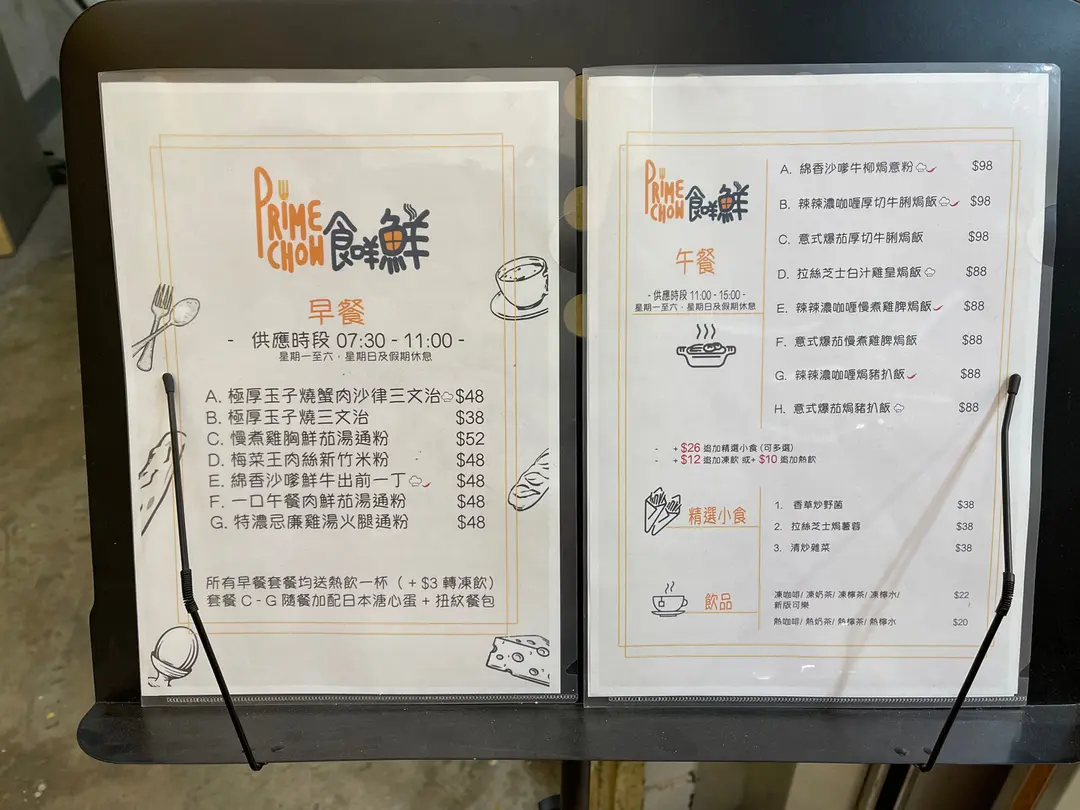 PRIME CHOW 食咩鮮
早餐
- 供應時段 07:30 - 11:00 -
星期一至六，星期日及假期休息
A. 極厚玉子燒蟹肉沙律三文治 $48
B. 極厚玉子燒三文治 $38
C. 慢煮雞胸鮮茄湯通粉 $52
D. 梅菜王肉絲新竹米粉 $48
E. 綿香沙嗲鮮牛出前一丁 $48
F. 一口午餐肉鮮茄湯通粉 $48
G. 特濃忌廉雞湯火腿通粉 $48
所有早餐套餐均送熱飲一杯（ + $3 轉凍飲）
套餐 C - G 隨餐加配日本溏心蛋 + 扭紋餐包
PRIME CHOW 食咩鮮
午餐
- 供應時段 11:00 - 15:00 -
星期一至六，星期日及假期休息
A. 綿香沙嗲牛柳焗意粉 $98
B. 辣辣濃咖喱厚切牛脷焗飯 $98
C. 意式爆茄厚切牛脷焗飯 $98
D. 拉絲芝士白汁雞皇焗飯 $88
E. 辣辣濃咖喱慢煮雞脾焗飯 $88
F. 意式爆茄慢煮雞脾焗飯 $88
G. 辣辣濃咖喱焗豬扒飯 $88
H. 意式爆茄焗豬扒飯 $88
- + $26 追加精選小食 (可多選)
- + $12 追加凍飲 或+ $10 追加熱飲
精選小食
1. 香草炒野菌 $38
2. 拉絲芝士焗薯蓉 $38
3. 清炒雜菜 $38
飲品
凍咖啡/ 凍奶茶/ 凍檸茶/ 凍檸水/ $22
新版可樂
熱咖啡/ 熱奶茶/ 熱檸茶/ 熱檸水 $20